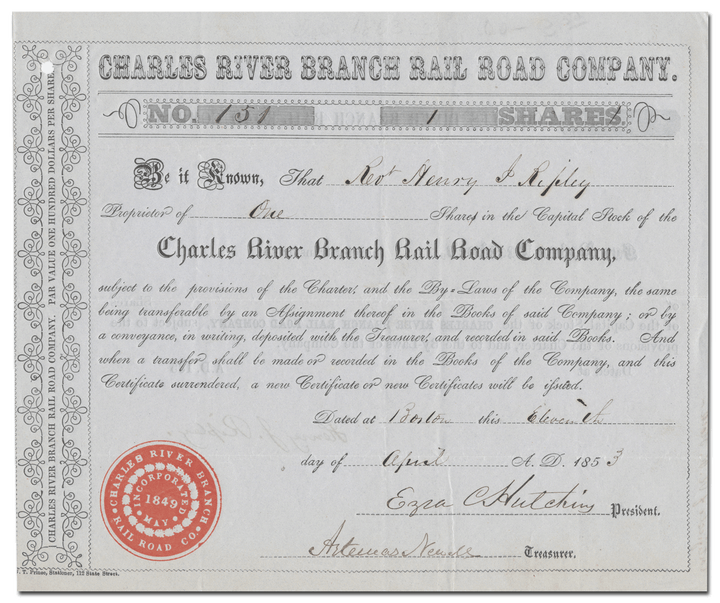 CHARLES RIVER BRANCH RAIL ROAD COMPANY.
NO. 151 1 SHARES.
Be it Known, That Revd Henry J Ripley
Proprietor of One Shares in the Capital Stock of the
Charles River Branch Rail Road Company,
subject to the provisions of the Charter, and the By-Laws of the Company, the same
being transferable by an Assignment thereof in the Books of said Company; or by
a conveyance, in writing, deposited with the Treasurer, and recorded in said Books. And
when a transfer shall be made or recorded in the Books of the Company, and this
Certificate surrendered, a new Certificate or new Certificates will be issued.
Dated at Boston this Eleventh
day of April A. D. 1853
Ezra C. Hutchins President.
Artemas Newell Treasurer.
CHARLES RIVER BRANCH RAIL ROAD CO.
INCORPORATED MAY
1849
CHARLES RIVER BRANCH RAIL ROAD COMPANY. PAR VALUE ONE HUNDRED DOLLARS PER SHARE.
Prince, Stationer, 112 State Street.